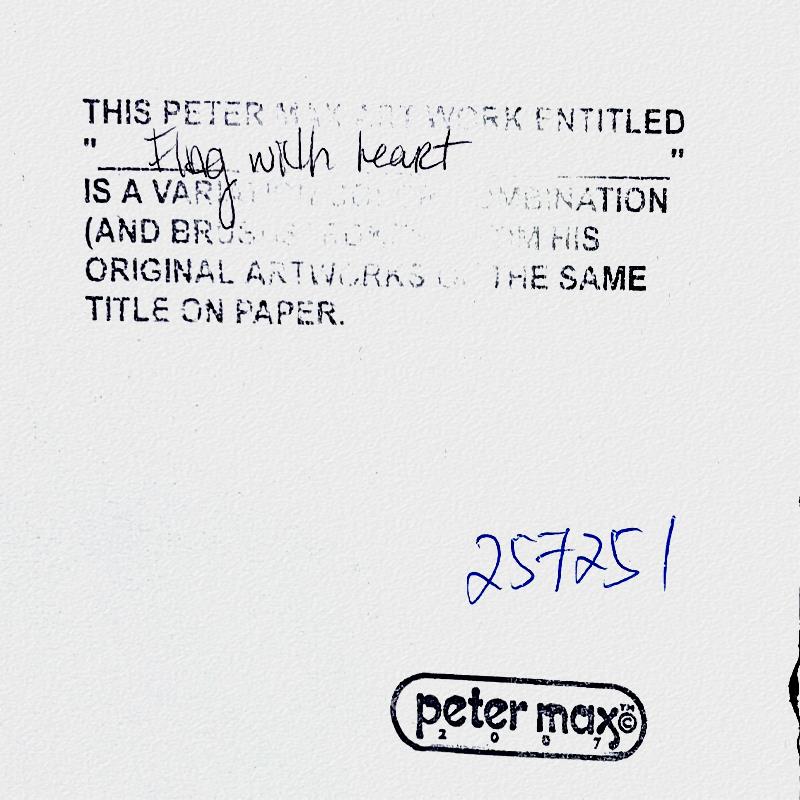 THIS PETER MAX ART WORK ENTITLED
"Flag with heart"
IS A VARIATION COLOR COMBINATION
(AND BRUSHSTROKES) FROM HIS
ORIGINAL ARTWORKS OF THE SAME
TITLE ON PAPER.
257251
peter max™©
2007